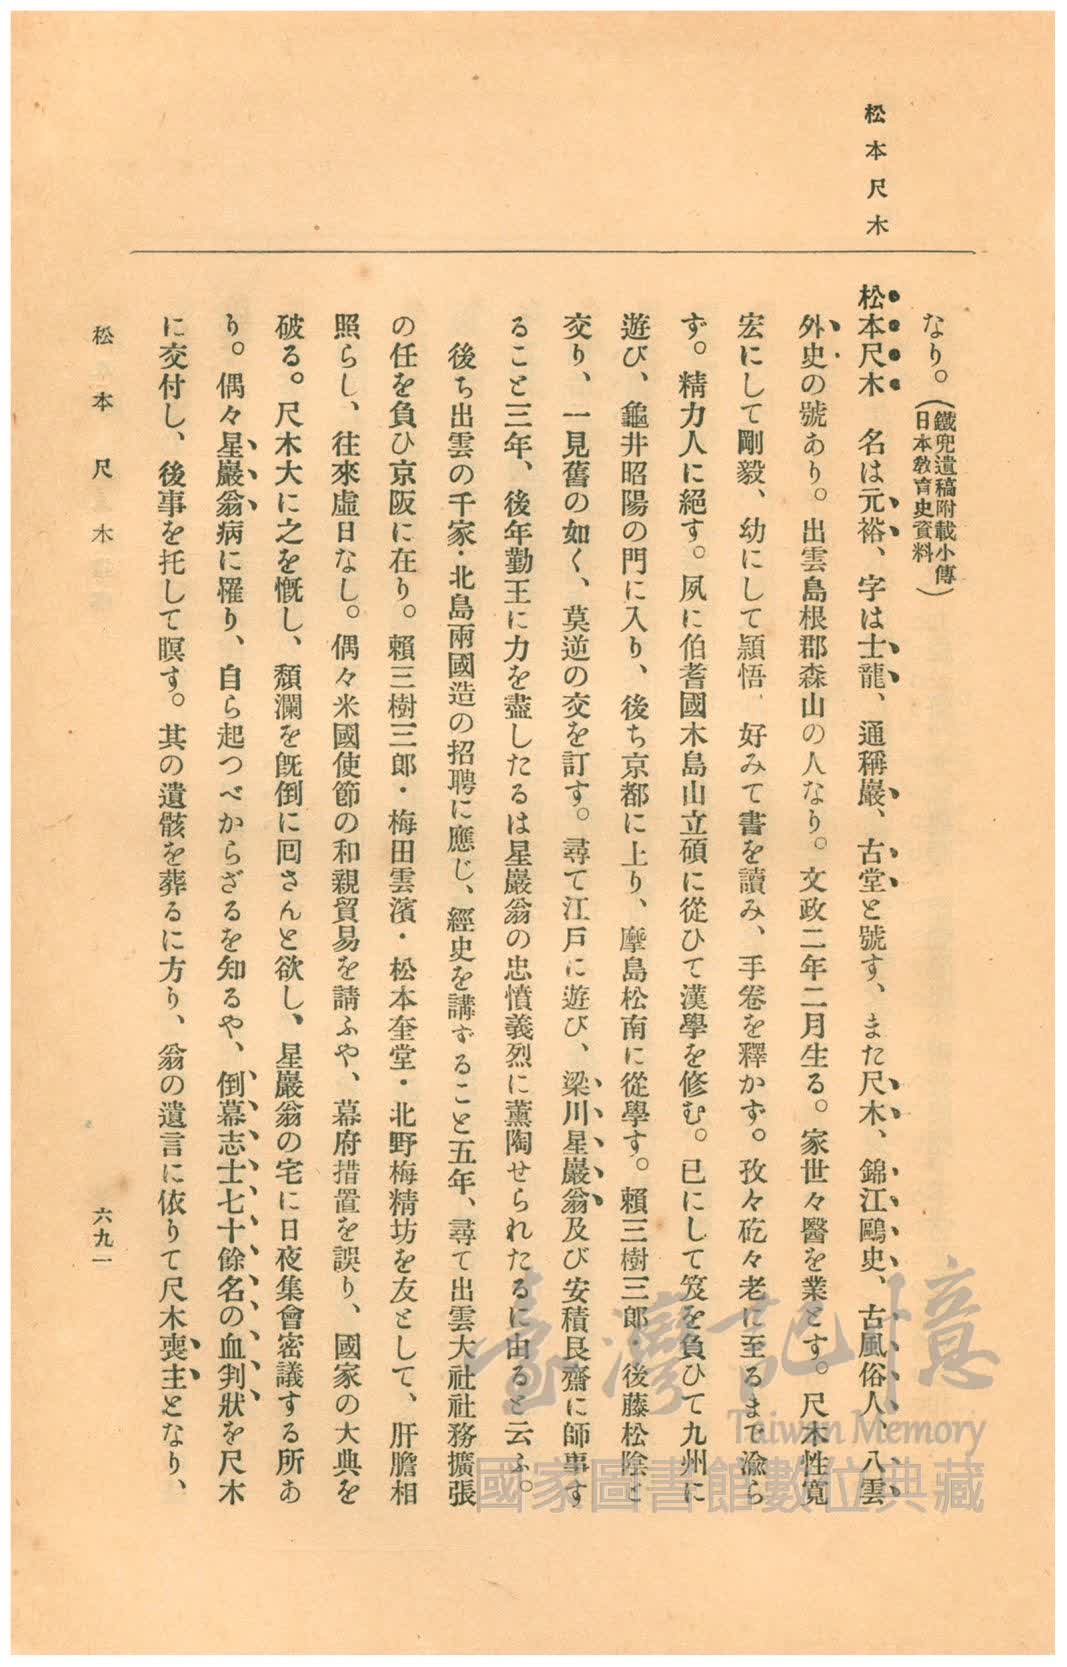 松本尺木
なり。(鐵兜遺稿附載小傳
日本敎育史資料)
松本尺木　名は元裕、字は士龍、通稱巖、古堂と號す、また尺木、錦江鷗史、古風俗人、八雲
外史の號あり。出雲島根郡森山の人なり。文政二年二月生る。家世々醫を業とす。尺木性寬
宏にして剛毅、幼にして頴悟、好みて書を讀み、手卷を釋かず。孜々矻々老に至るまで渝ら
ず。精力人に絕す。夙に伯耆國木島山立碩に從ひて漢學を修む。已にして笈を負ひて九州に
遊び、龜井昭陽の門に入り、後ち京都に上り、摩島松南に從學す。賴三樹三郎・後藤松陰と
交り、一見舊の如く、莫逆の交を訂す。尋て江戶に遊び、梁川星巖翁及び安積艮齋に師事す
ること三年、後年勤王に力を盡したるは星巖翁の忠憤義烈に薰陶せられたるに由ると云ふ。
後ち出雲の千家・北島兩國造の招聘に應じ、經史を講ずること五年、尋て出雲大社社務擴張
の任を負ひ京阪に在り。賴三樹三郎・梅田雲濱・松本奎堂・北野梅精坊を友として、肝膽相
照らし、往來虛日なし。偶々米國使節の和親貿易を請ふや、幕府措置を誤り、國家の大典を
破る。尺木大に之を慨し、頽瀾を旣倒に回さんと欲し、星巖翁の宅に日夜集會密議する所あ
り。偶々星巖翁病に罹り、自ら起つべからざるを知るや、倒幕志士七十餘名の血判狀を尺木
に交付し、後事を托して瞑す。其の遺骸を葬るに方り、翁の遺言に依りて尺木喪主となり、
松本尺木
六九一
臺灣記憶
Taiwan Memory
國家圖書館數位典藏